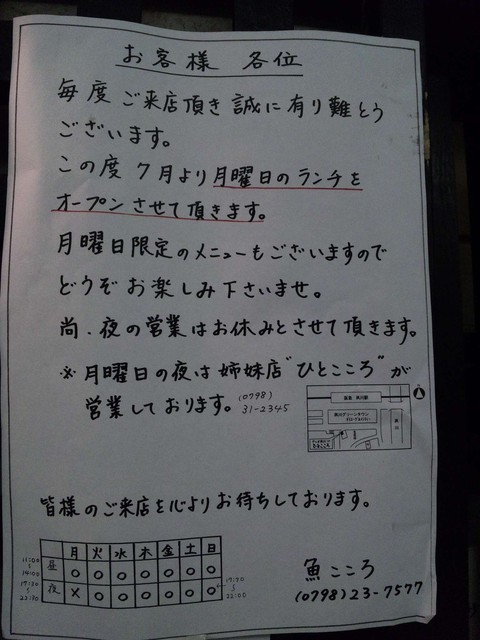 お客様 各位
毎度 ご来店頂き 誠に 有り難とう
ございます。
この度 7月より 月曜日のランチを
オープンさせて頂きます。
月曜日限定のメニューもございますので
どうぞ お楽しみ 下さいませ。
尚、夜の営業はお休みとさせて頂きます。
※ 月曜日の夜は 姉妹店"ひとこころ"が
営業しております。(0798)
31-2345
皆様のご来店を心よりお待ちしております。
月 火 水 木 金 土 日
11:00
〜
14:00
昼 ○ ○ ○ ○ ○ ○ ○
17:30
〜
22:30
夜 × ○ ○ ○ ○ ○ ○
17:30
〜
22:00
魚 こころ
(0798)23-7577